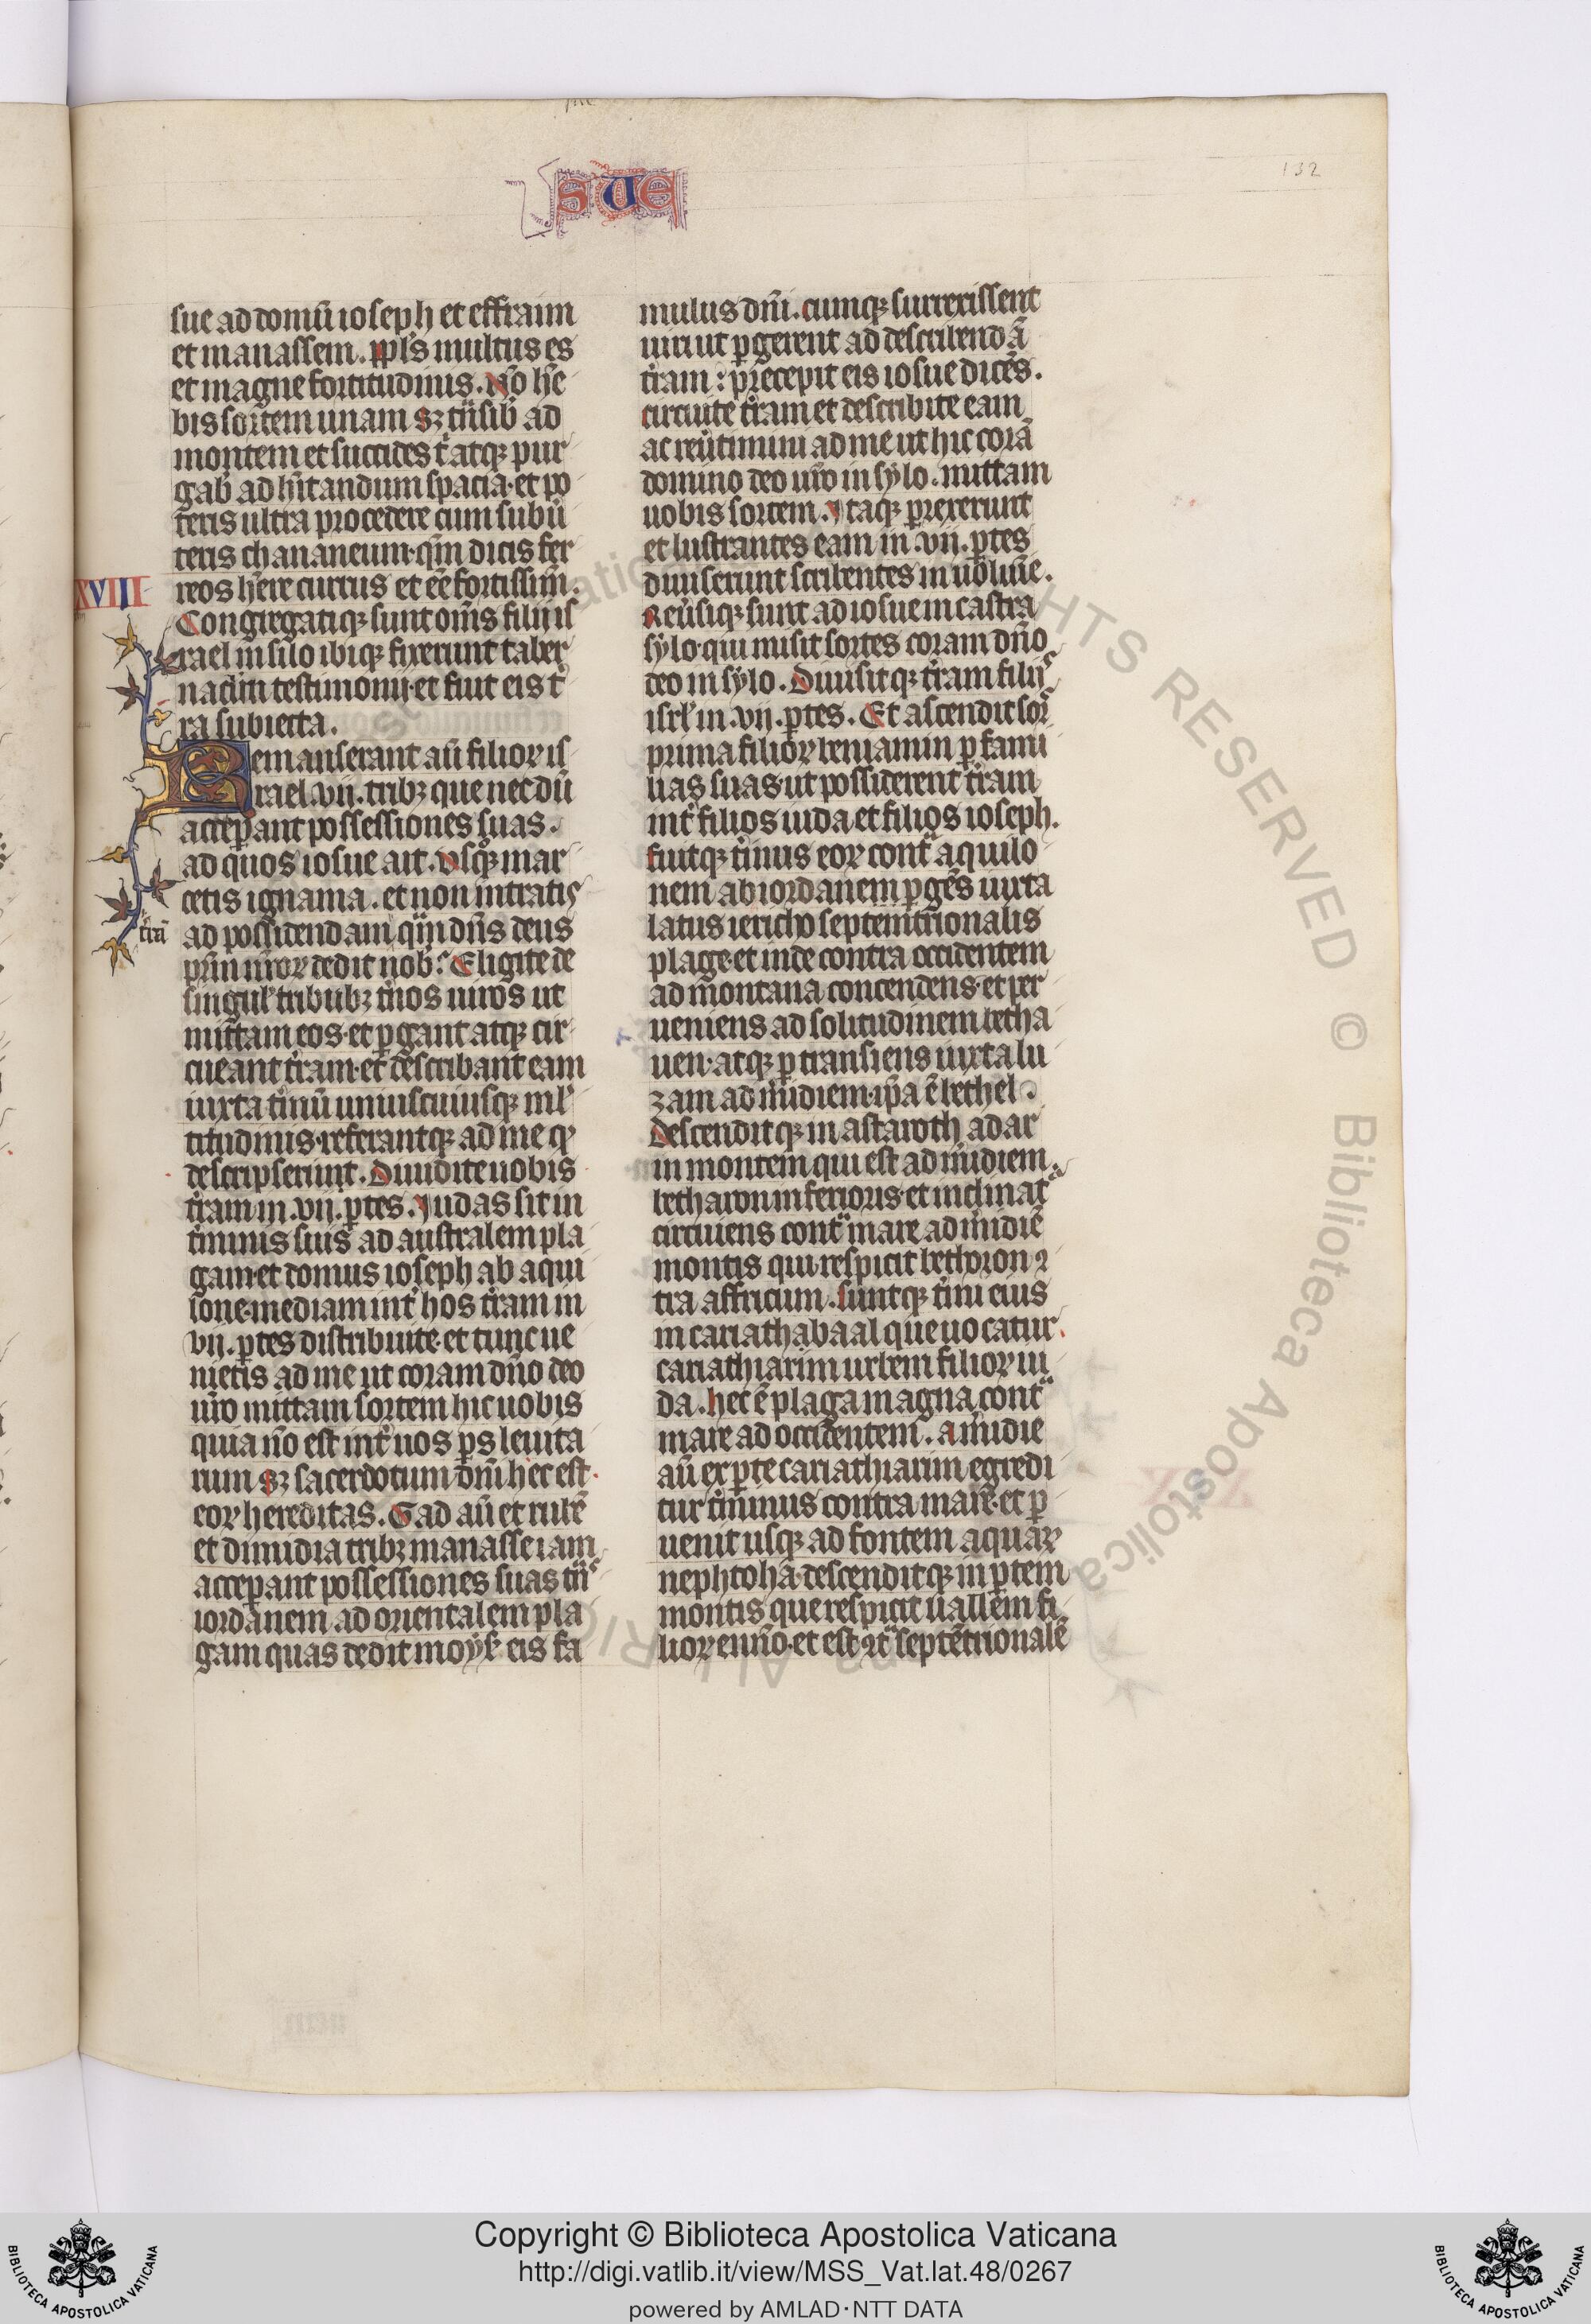 SUE
132
sue ad domū ioseph et effraim
et manassem. ppl̓s multus es
et magne fortitudinis. Nō hē
bis sortem unam sꝫ t̄nsib̓ ad
montem et succides t̓ atqꝫ pur
gab̓ ad hītandum spacia. et po
teris ultra procedere cum subū
teris chananeum. qm̄ dicis fer
reos hēre currus et eē fortissim̄.
XVIII
Congregatiqꝫ sunt om̄s filij is
rael in silo ibiqꝫ fixerunt taber
naclm̄ testimonij. et fuit eis t̓
ra subiecta.
Remanserant aū filioꝝ is
rael .vij. tribꝫ que necdū
acceꝑant possessiones suas.
ad quos iosue ait. Usqꝫ̊ mar
cetis ignauia. et non intratis
t̓rā
ad possidendam quā dn̄s deus
prm̄ nr̄oꝝ dedit uob̓. Eligite de
singul̓ tribubꝫ t̓nos uiros ut
mittam eos. et ꝑgant atqꝫ cir
cueant t̓ram. et describant eam
iuxta t̓inū uniuscuiusqꝫ ml̓
titudinis. referantqꝫ ad me qͥ
descripserint. Diuidite uobis
t̓ram in .vij. ꝑtes. Judas sit in
t̓minis suis ad australem pla
gam. et domus ioseph ab aqui
lone. mediam int̓ hos t̓ram in
vij. ꝑtes distribuite. et tunc ue
nietis ad me ut coram dn̄o deo
ur̄o mittam sortem hic uobis
quia nō est int̓ uos ꝑs leuita
rum sꝫ sacerdotum dn̄i hec est
eoꝝ hereditas. Gad aū et rubē
et dimidia tribꝫ manasse iam
acceꝑant possessiones suas t̄ns
iordanem ad orientalem pla
gam quas dedit moyſ̓ eis fa
mulus dn̄i. cumqꝫ surrexissent
uiri ut ꝑgerent ad describendā
t̓ram: precepit eis iosue dicēs.
circuite t̓ram et describite eam
ac reu̓timini ad me ut hic corā
domino deo ur̄o in sylo. mittam
uobis sortem. Jtaqꝫ ꝑrexerunt
et lustrantes eam in .vij. ꝑtes
diuiserunt scribentes in uolūīe.
Reu̓siqꝫ sunt ad iosue in castra
sylo. qui misit sortes coram dn̄o
deo in sylo. Diuisitqꝫ t̓ram filijs
isrl̓ in .vij. ꝑtes. Et ascendit sors
prima filioꝝ beniamin ꝑ fami
lias suas. ut possiderent t̓ram
int̓ filios iuda et filios ioseph.
fuitqꝫ t̓inus eoꝝ cont̓ aquilo
nem ab iordanem ꝑgēs iuxta
latus iericho septemtrionalis
plage. et inde contra occidentem
ad montana concendens. et per
ueniens ad solitudinem betha
uen. atqꝫ ꝑtransiens iuxta lu
zam ad m̓idiem. ip̄a ē bethel
Descenditqꝫ in astaroth adar
in montem qui est ad m̓idiem
bethaion inferioris. et inclinat̓
circuiens cont̓ mare ad m̓idiē
montis qui respicit bethoron ꝯ
tra affricum. suntqꝫ t̓ini eius
in cariathabaal que uocatur
cariathiarim urbem filioꝝ iu
da. hec ē plaga magna cont̓
mare ad occidentem. a m̓idie
aū ex ꝑte cariathiarim egredi
tur t̓minus contra mare. et ꝑ
uenit usqꝫ ad fontem aquaꝝ
nephtoha. descenditqꝫ in ꝑtem
montis que respicit uallem fi
lioꝝ ennō. et est ꝯt̓ septētrionalē
Copyright © Biblioteca Apostolica Vaticana
http://digi.vatlib.it/view/MSS_Vat.lat.48/0267
powered by AMLAD·NTT DATA
BIBLIOTECA APOSTOLICA VATICANA
BIBLIOTECA APOSTOLICA VATICANA